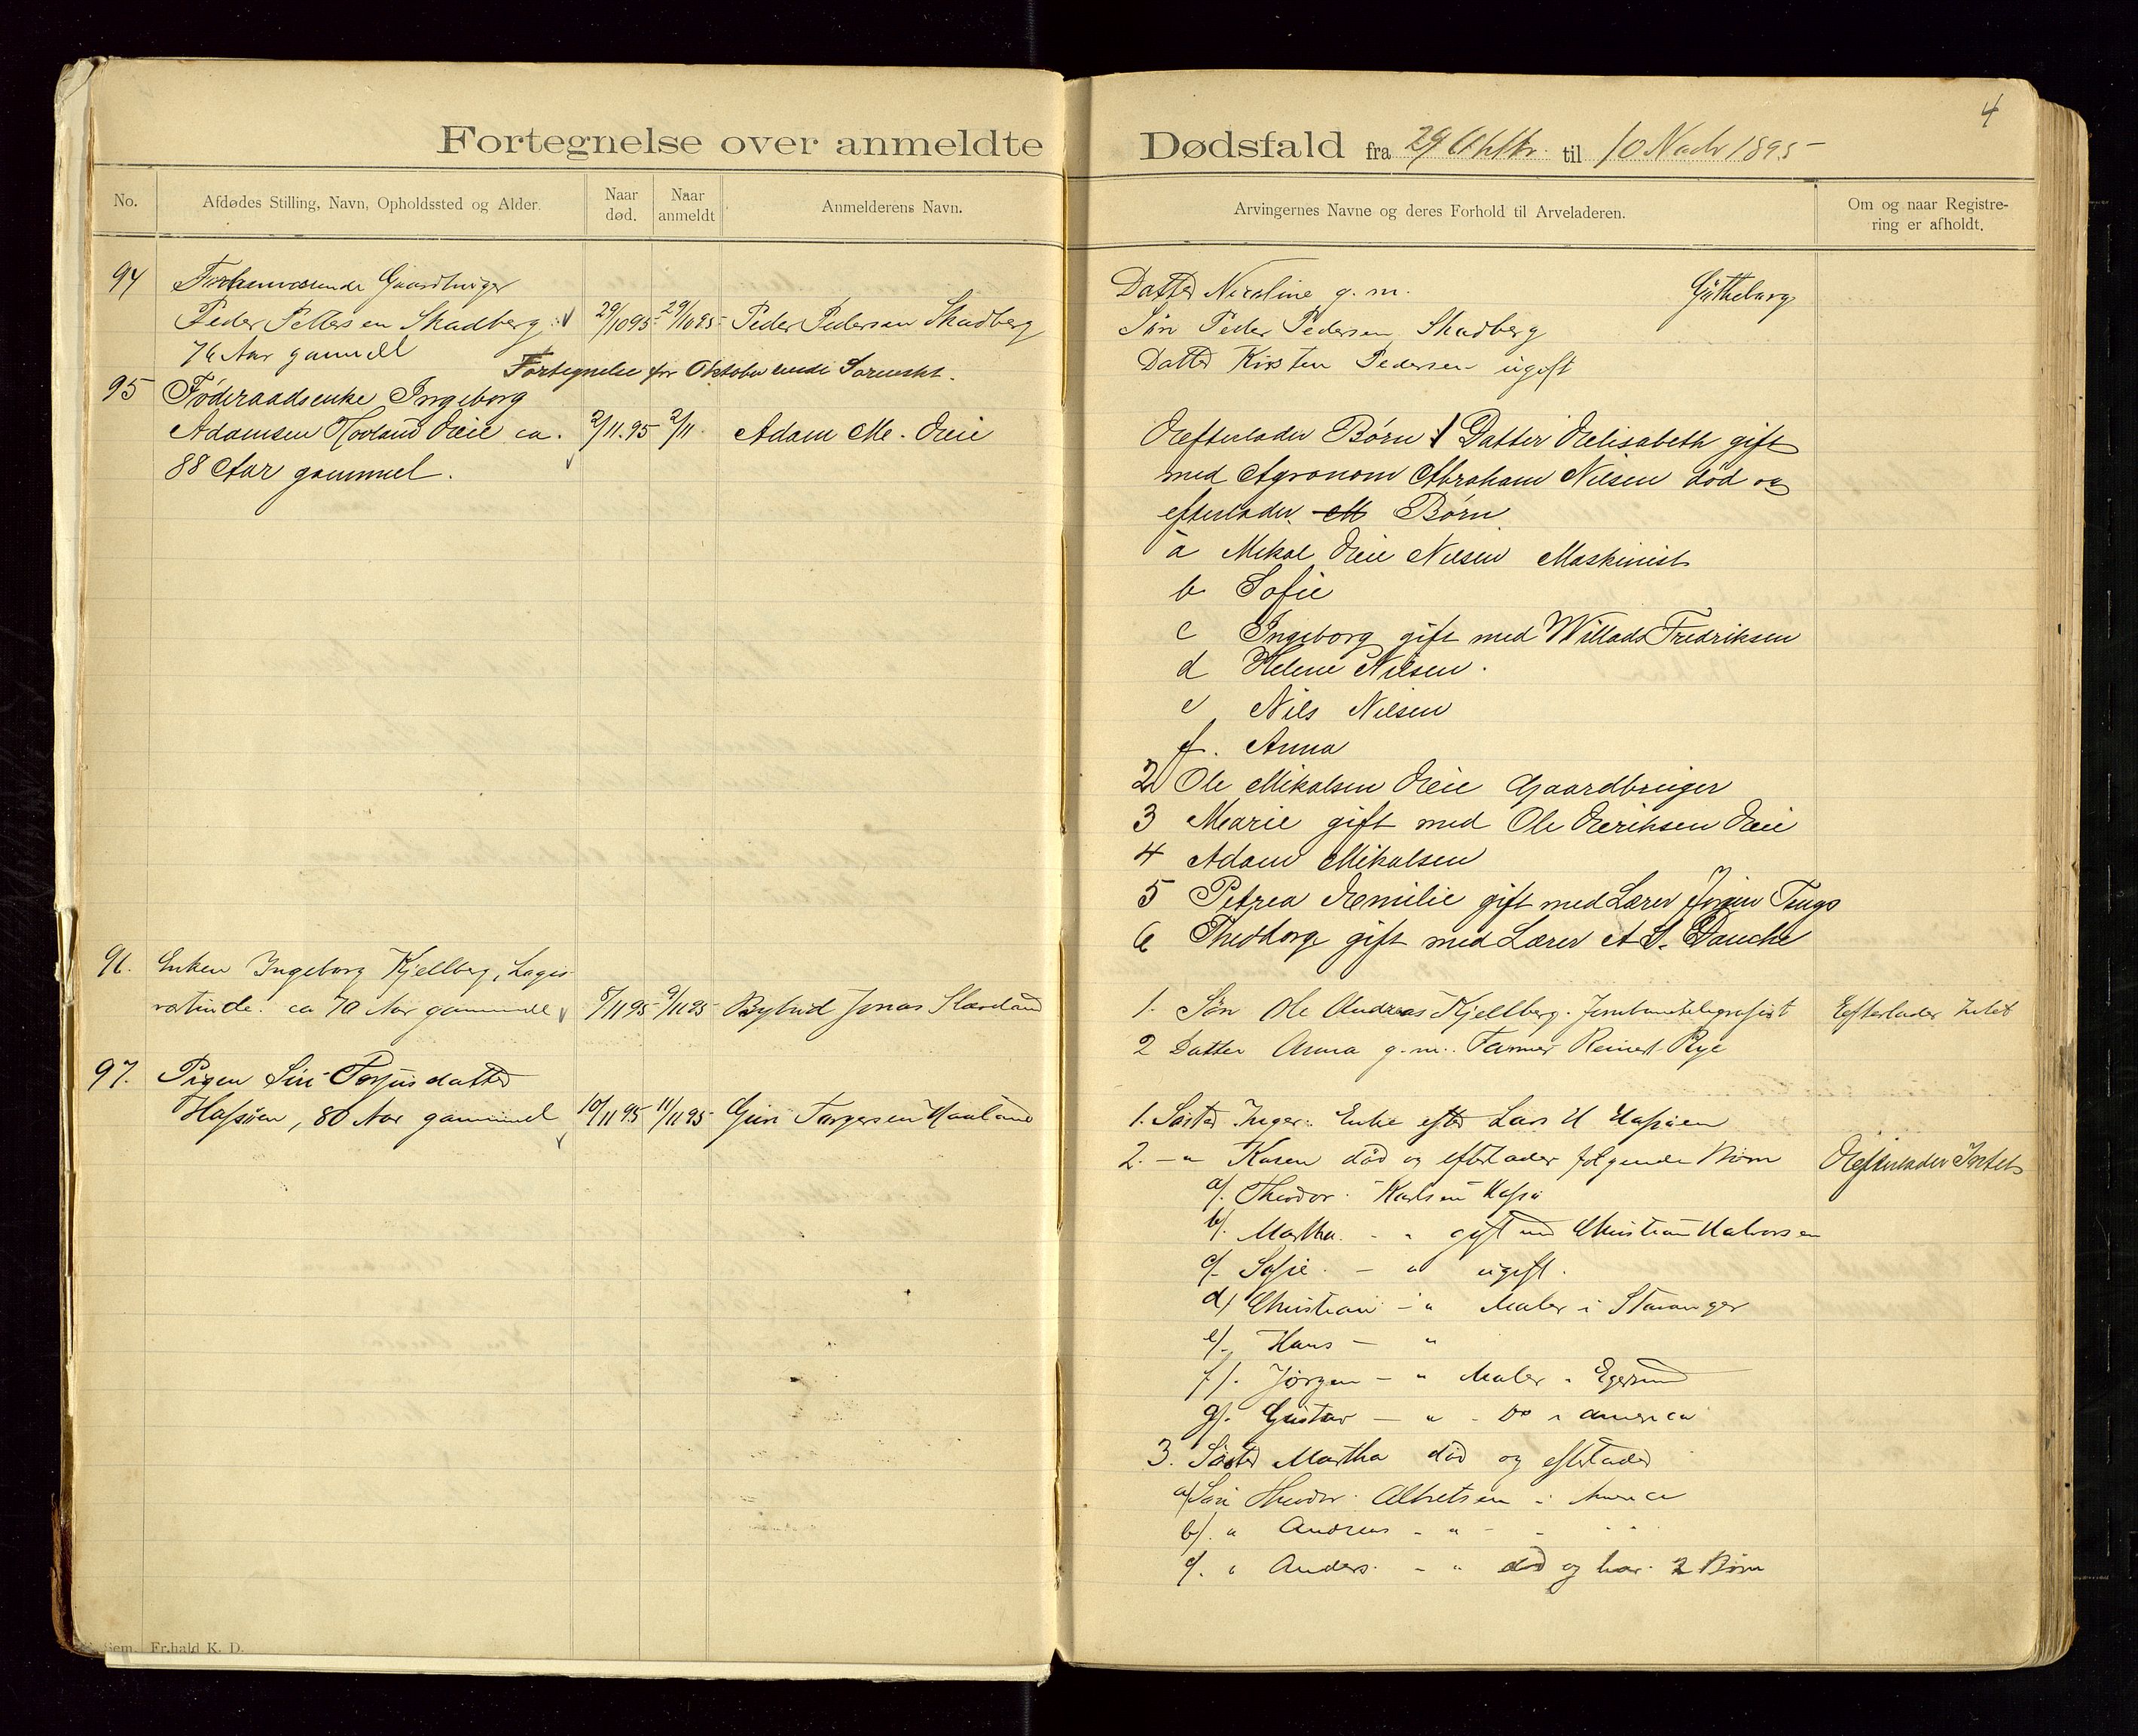 4
Fortegnelse over anmeldte Dødsfald fra 29 Oktbr. til 10 Novbr 1895
No.
Afdødes Stilling, Navn, Opholdssted og Alder.
Naar død.
Naar anmeldt
Anmelderens Navn.
Arvingernes Navne og deres Forhold til Arveladeren.
Om og naar Registrering er afholdt.
94 Forhenværende Gaardbruger
Peder Pettersen Skadberg 29/10 95 29/10 95 Peder Pedersen Skadberg
76 Aar gammel
Datter Nicoline g. m. Gøtheborg
Søn Peder Pedersen Skadberg
Datter Kirsten Pedersen ugift
Fortegnelse for Oktober sendt Sorenskr.
95 Føderaadsenke Ingeborg
Adamsen Hovland Eeie ca. 2/11.95 2/11 Adam M. Eeie
88 Aar gammel.
Eefterlader Børn 1 Datter Eelisabeth gift
med Agronom Abraham Nilsen død og
efterlader ett Børn
a Mikal Eeie Nilsen Maskinist
b Sofie
c Ingeborg gift med Willads Fredriksen
d Helene Nilsen.
e Nils Nilsen
f. Anna
2 Ole Mikalsen Eeie Gaardbruger
3 Marie gift med Ole Eeriksen Eeie
4 Adam Mikalsen
5 Petrea Eemilie gift med Lærer Jørgen Tengs
6 Theoborg gift med Lærer A S. Dauche
96. Enken Ingeborg Kjellberg, Logis
værtinde. ca 70 Aar gammel 8/11 95 9/11 95 Bybud Jonas
1. Søn Ole Andreas Kjellberg. Jernbanetelegrafist Efterlader Intet
2 Datter Anna g. m. Farmer Reinert Rye
97. Pigen Siri Torjusdatter
Hafsøen, 80 Aar gammel 10/11 95 11/11 95 Guri Torgersen Haaland
1. Søster Inger. Enke efter Lars H Hafsøen
2. - " Karen død og efterlader følgende Børn Eefterlader Intet
a/. Theodor. Karlsen Hafsø
b/. Martha. - " gift med Christian Halvorsen
c/. Sofie. - " ugift.
d/ Christian - " Maler i Stavanger
e/. Hans - "
f/. Jørgen - " Maler " Egersund
g/. Gustav - " - Do i America
3. Søster Martha død og efterlader
a/ Søn Theodor. Albretsen i America
b/. " Andreas - " - - " "
c/. " Anders. - " død og har 2 Børn
Sem Fr.hald K. D.